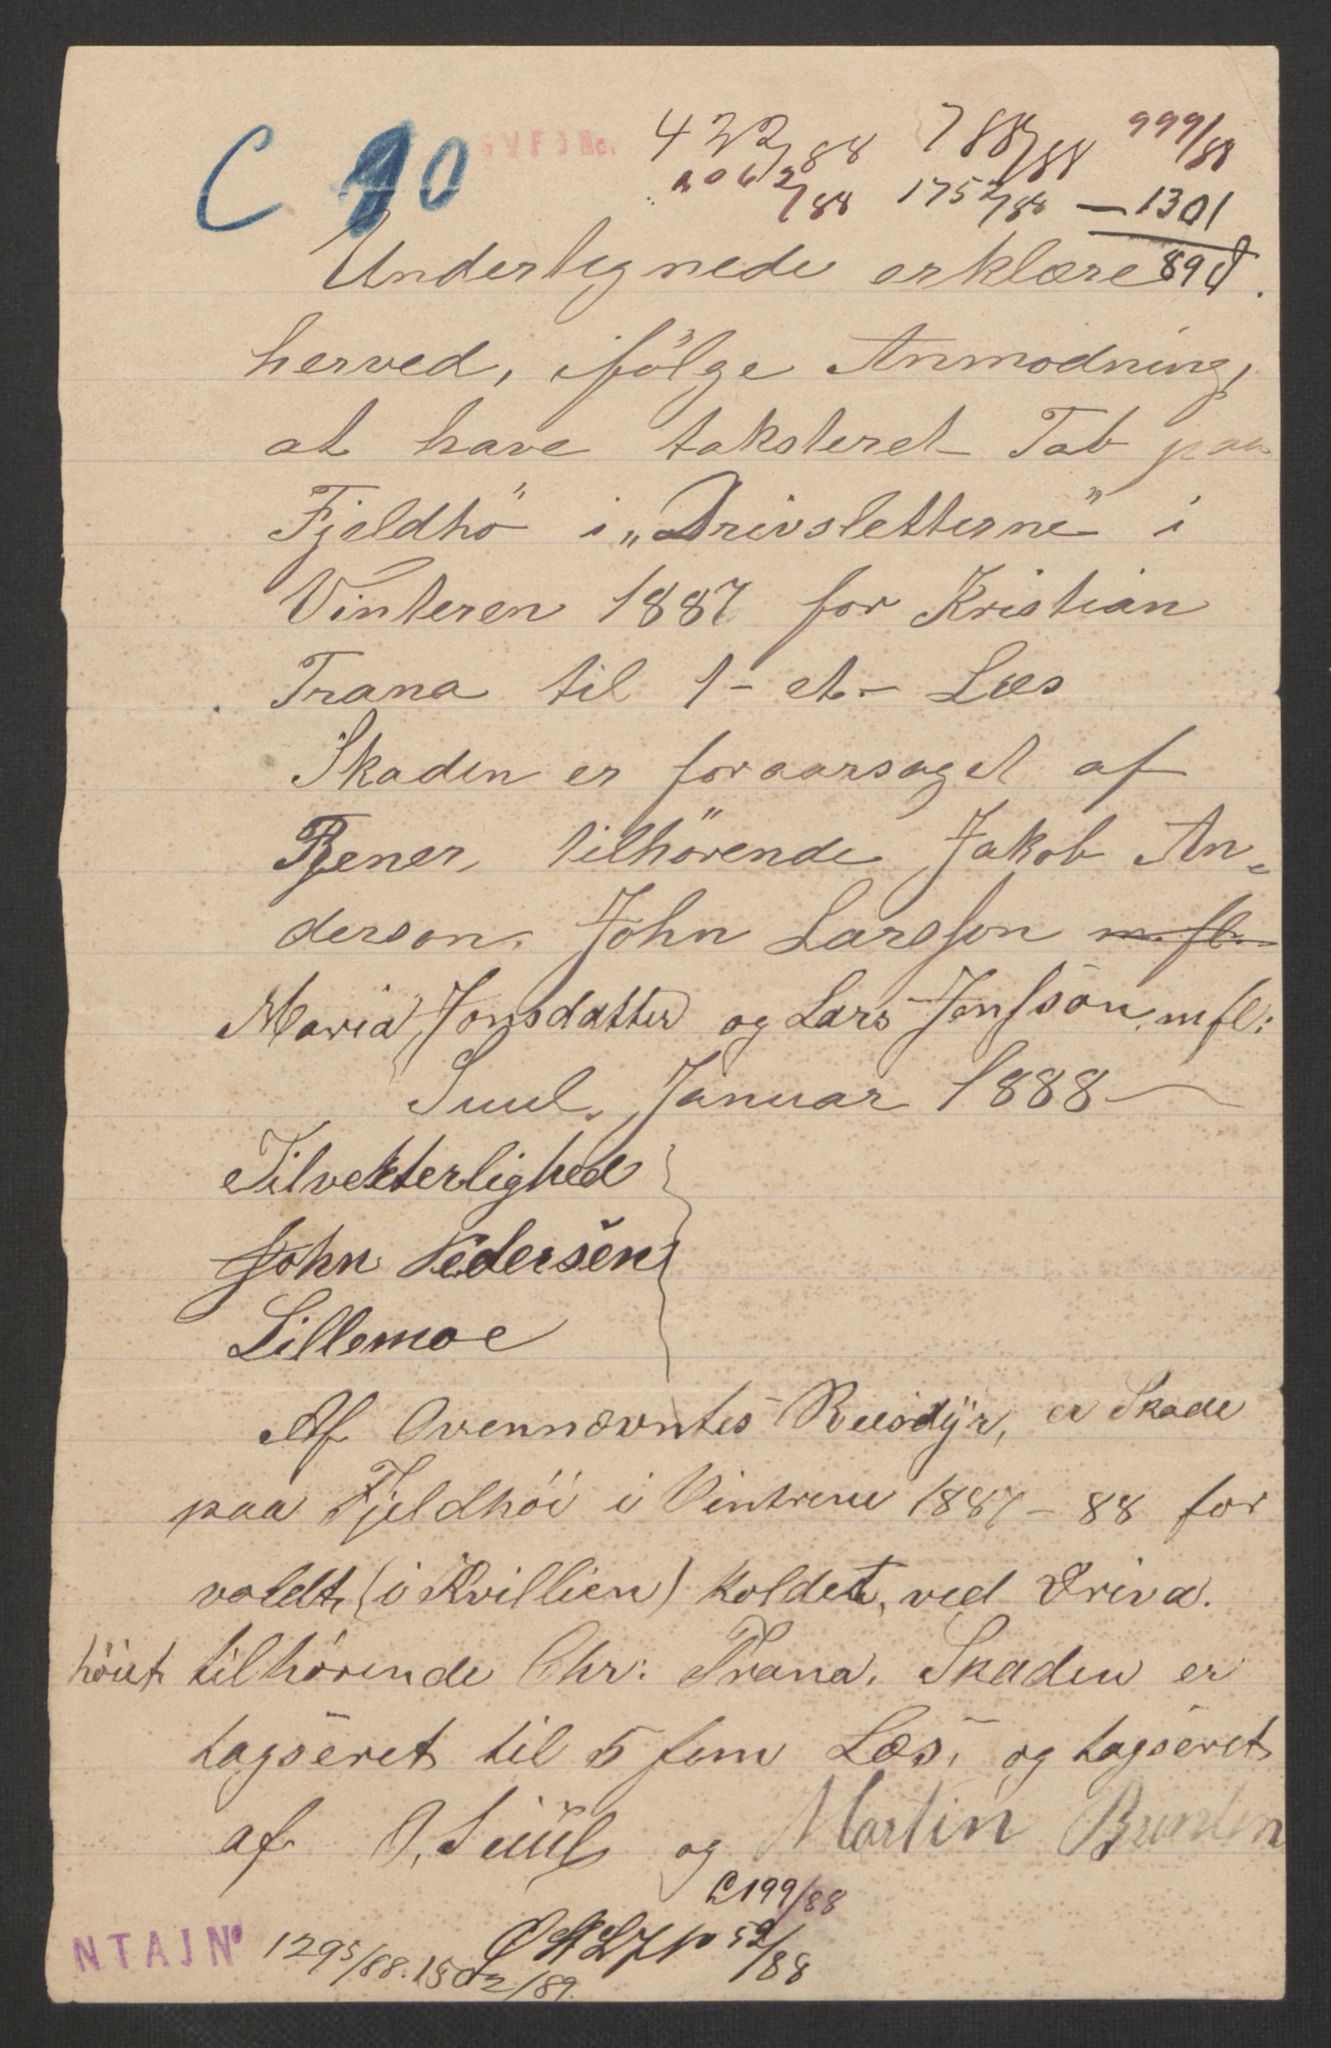 C 10
422/88 788/88 999/88
2062/88 1752/88 — 1301
89
Undertegnede erklære
herved, ifölge Anmodning,
at have taksteret Tab paa
Fjeldhö i „Drivsletterne" i
Vinteren 1887 for Kristian
Trana til 1 - et - Læs
Skaden er foraarsaget af
Rener, tilhörende Jakob An-
derson. John Larsson m. fl.
Maria Jonsdatter og Lars Jonsson, mfl:
Suul, Januar 1888
Tilvekterlighed
John Pedersen
Lillemoe
Af Ovennævntes Reisdÿr, er Skade
paa Fjeldhöi i Vintren 1887 - 88 for
voldt, (i Kvillien) koldet, ved Driva.
höiet tilhörende Chr: Trana. Skaden er
tagseret til 5 fem Læs, og tagseret
af O. Suul og Martin
C 199/88
NTAJN° 1295/88. 1502/89. 52/88